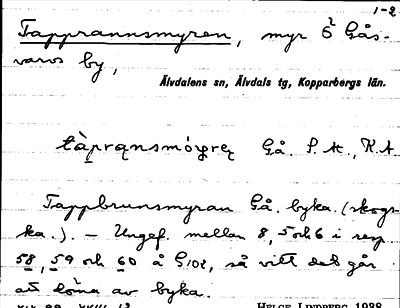 1-2
Tapprannsmyren, myr Ö Gås-
varvs by,
Älvdalens sn, Älvdals tg, Kopparbergs län.
Gå.
Tappbrunsmyran Gå. byka. (skogs
ka.). — Ungef. mellan 8, 5 och 6 i resp
58, 59 och 60 å G102, så vitt det går
att döma av byka.
HELGE LINDBERG 1938